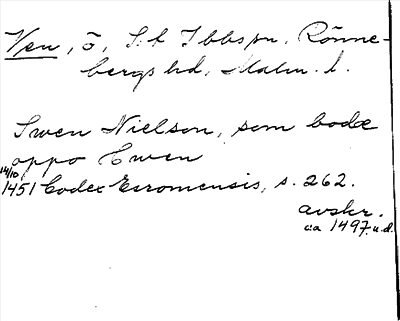 Ven, ö, S:t Ibbs sn, Rönne-
bergs hd, Malm. l.
Swen Nielson, som bodæ
oppo Hwen
14/10
1451 Codex Esromensis, s. 262.
avskr.
ca 1497. u.d.